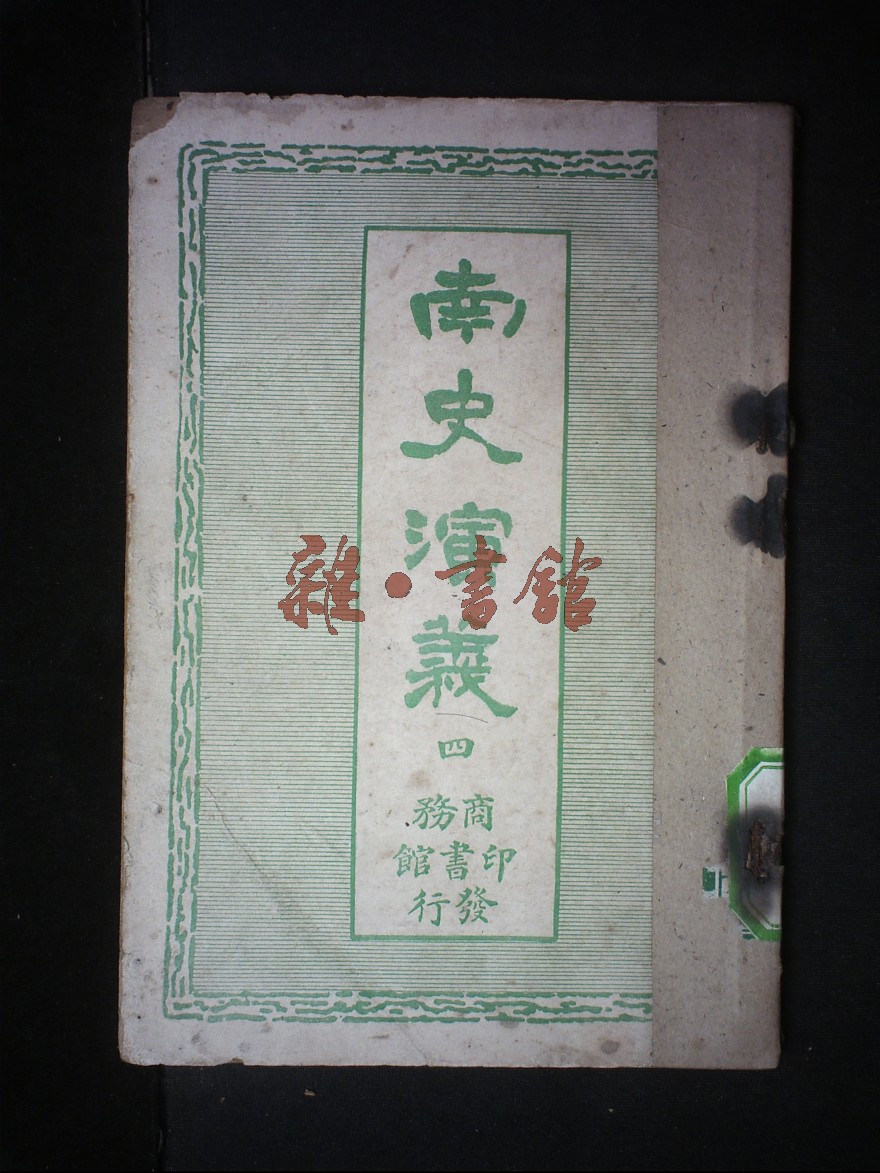 南史演義
四
商務
印書館
發行
雜·書館